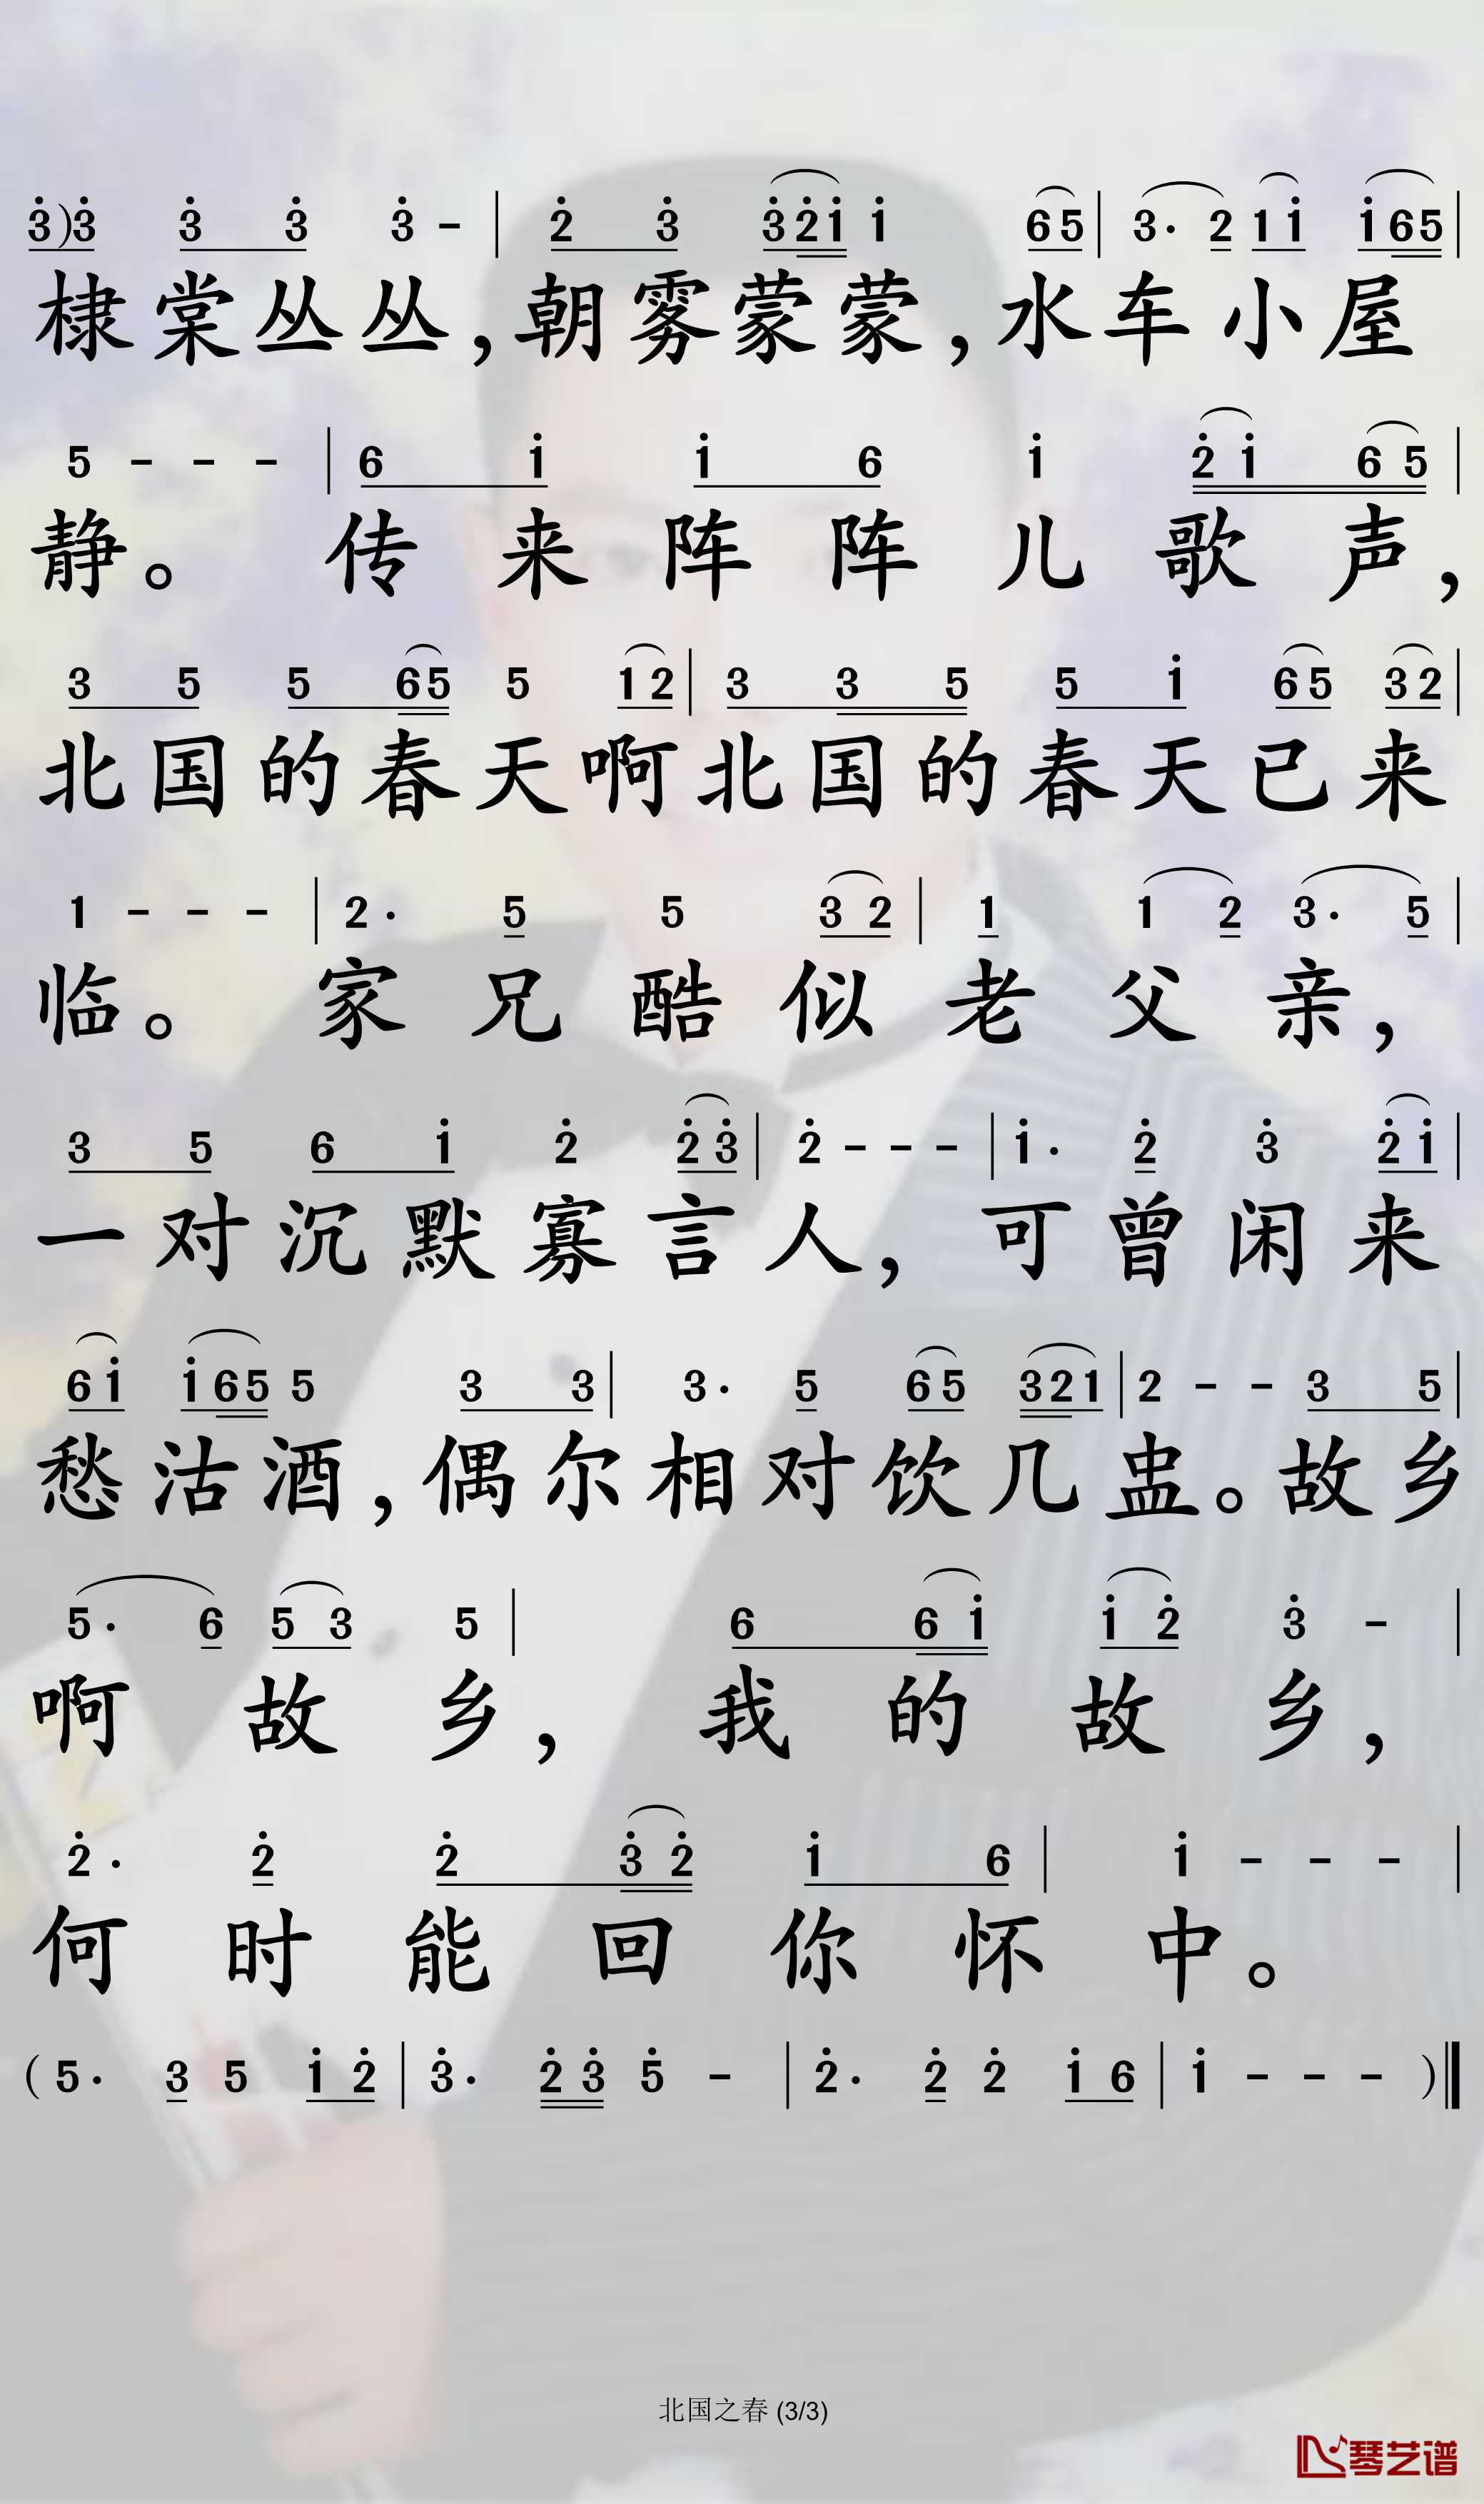 3)3 3 3 3 - | 2 3 321 1 65 | 3. 2 11 165 |
棣棠丛丛，朝雾蒙蒙，水车小屋
5 - - - | 6 1 1 6 1 21 65 |
静。传来阵阵儿歌声，
3 5 5 65 5 12 | 3 3 5 5 1 65 32 |
北国的春天啊北国的春天已来
1 - - - | 2. 5 5 32 | 1 1 2 3. 5 |
临。家兄酷似老父亲，
3 5 6 1 2 23 | 2 - - - | 1. 2 3 21 |
一对沉默寡言人，可曾闲来
61 165 5 3 3 | 3. 5 65 321 | 2 - - 3 5 |
愁沽酒，偶尔相对饮几盅。故乡
5. 6 53 5 | 6 61 12 3 - |
啊故乡，我的故乡，
2. 2 2 32 1 6 | 1 - - - |
何时能回你怀中。
(5. 3 5 12 | 3. 23 5 - | 2. 2 2 16 | 1 - - - )
北国之春 (3/3)
琴艺谱